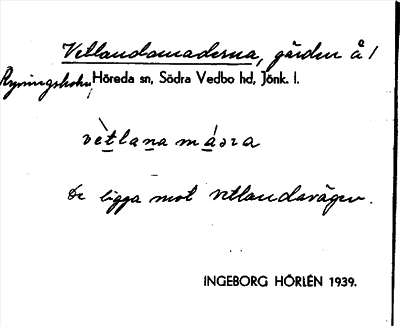 Vetlandamaderna, gärden å 1
Ryningsholm, Höreda sn, Södra Vedbo hd, Jönk. l.
vètlana maəra
De ligga mot Vetlandavägen.
INGEBORG HÖRLÉN 1939.